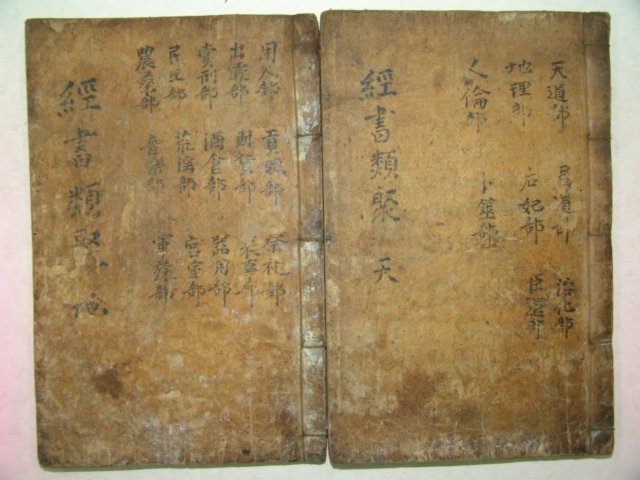 天道部 君道部 治化部
地理部 后妃部 臣道部
人倫部 卜筮部
經書類聚 天
用人部 貢賦部 祭礼部
出處部 財貨部
賞刑部 酒食部 器用部
民生部 宮室部
農桑部 音樂部 軍旅部
經書類聚 地